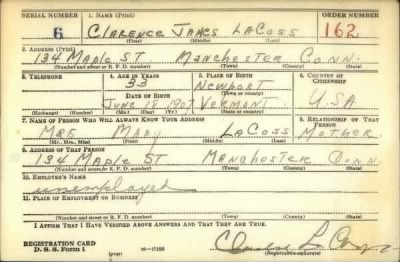 SERIAL NUMBER 1. NAME (Print) ORDER NUMBER
6 CLARENCE JAMES LACOSS 162
(First) (Middle) (Last)
2. ADDRESS (Print)
134 MAPLE ST MANCHESTER CONN.
(Number and street or R. F. D. number) (Town) (County) (State)
3. TELEPHONE 4. AGE IN YEARS 5. PLACE OF BIRTH 6. COUNTRY OF CITIZENSHIP
33 NEWPORT
DATE OF BIRTH (Town or county)
JUNE 18 1907 VERMONT U.S.A
(Exchange) (No.) (Mo.) (Day) (Yr.) (State or country)
7. NAME OF PERSON WHO WILL ALWAYS KNOW YOUR ADDRESS 8. RELATIONSHIP OF THAT PERSON
MRS MARY LACOSS MOTHER.
(Mr., Mrs., Miss) (First) (Middle) (Last)
9. ADDRESS OF THAT PERSON
134 MAPLE ST MANCHESTER CONN.
(Number and street or R. F. D. number) (Town) (County) (State)
10. EMPLOYER'S NAME
unemployed
11. PLACE OF EMPLOYMENT OR BUSINESS
(Number and street or R. F. D. number) (Town) (County) (State)
I AFFIRM THAT I HAVE VERIFIED ABOVE ANSWERS AND THAT THEY ARE TRUE.
REGISTRATION CARD
D. S. S. Form 1 (over) (Registrant's signature)